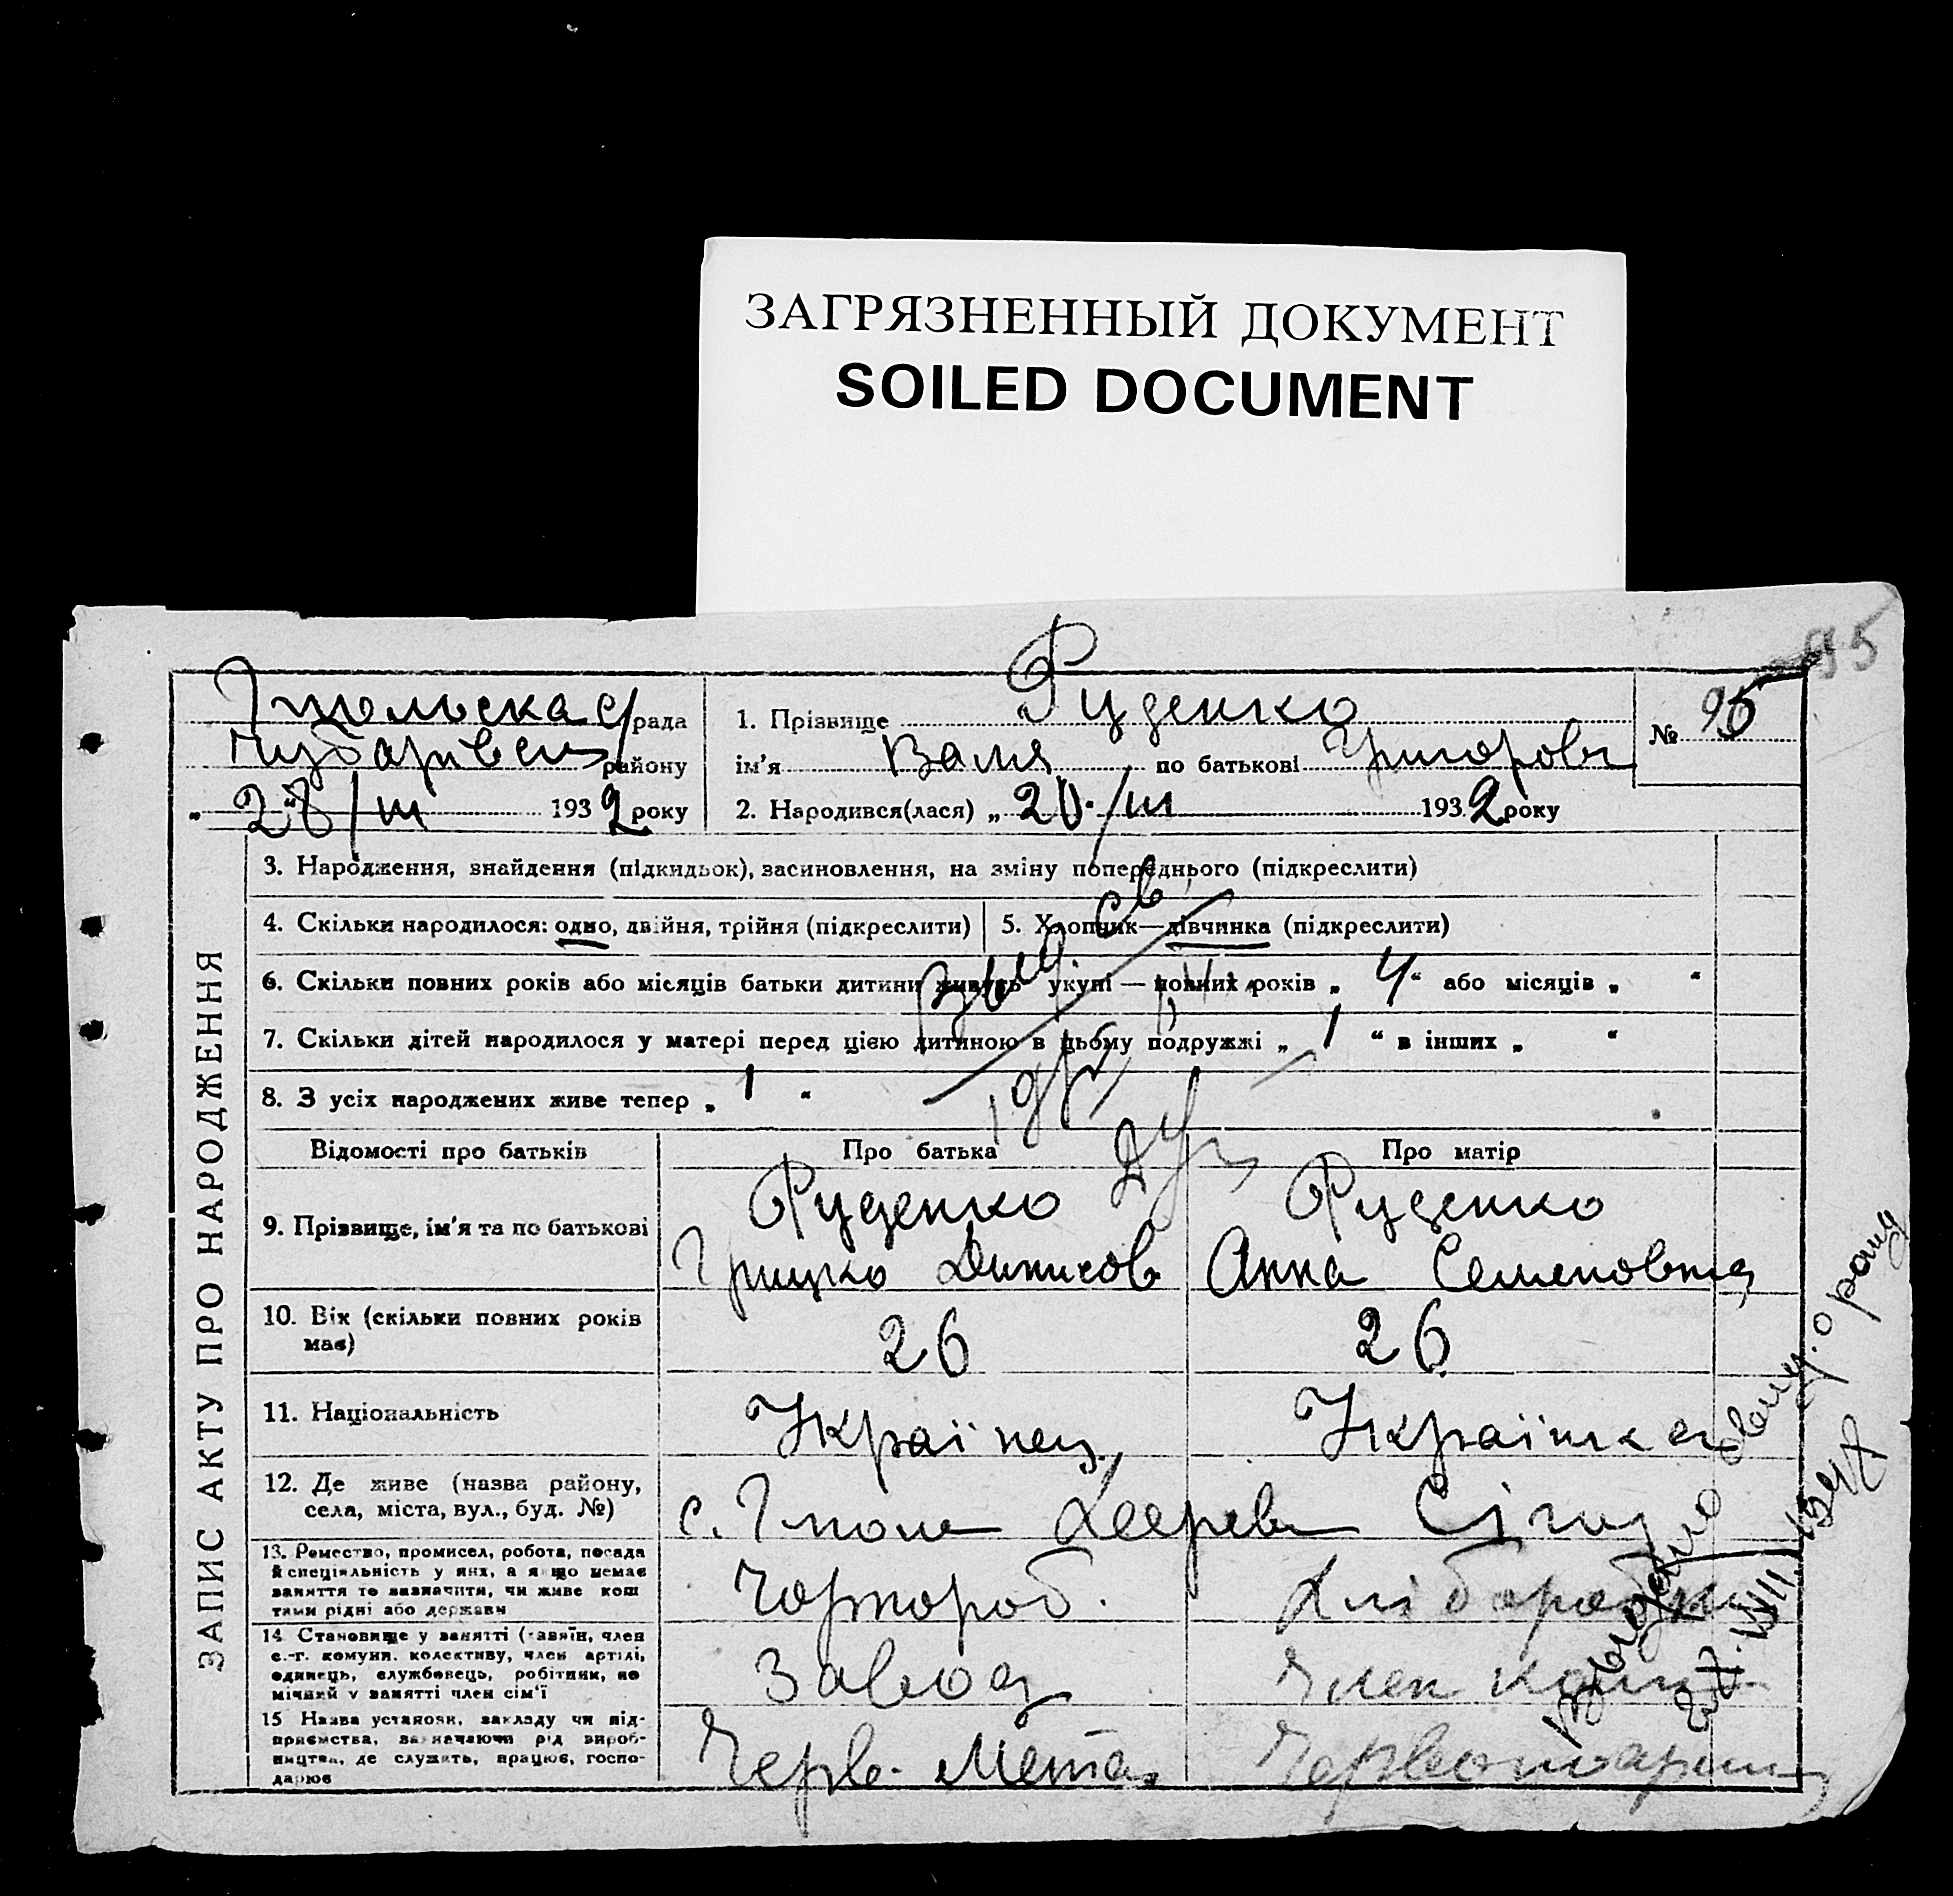 ЗАГРЯЗНЕННЫЙ ДОКУМЕНТ
SOILED DOCUMENT
95
рада
району
„28/III 1932 року
1. Прізвище Руденко
ім'я Валя по батькові Григоровн
2. Народився(лася) „20./III 1932 року
№ 95
ЗАПИС АКТУ ПРО НАРОДЖЕННЯ
3. Народження, знайдення (підкидьок), засиновлення, на зміну попереднього (підкреслити)
4. Скільки народилося: одно, двійня, трійня (підкреслити)
5. Хлопчик—дівчинка (підкреслити)
6. Скільки повних років або місяців батьки дитини живуть укупі — повних років „ 4 “ або місяців „ “
7. Скільки дітей народилося у матері перед цією дитиною в цьому подружжі „ 1 “ в інших „ “
8. З усіх народжених живе тепер „ 1 “
Відомості про батьків Про батька Про матір
9. Прізвище, ім'я та по батькові
Руденко Руденко
Грицько Анна Семеновна
10. Вік (скільки повних років має) 26 26
11. Національність Українец Українка
12. Де живе (назва району, села, міста, вул., буд. №)
13. Ремество, промисел, робота, посада
й спеціяльність у них, а якщо немає
заняття то зазначити, чи живе кош
тами рідні або держави
Чорнороб.
14 Становище у занятті (хазяїн, член
с.-г. комуни. колективу, член артілі,
одинець, службовець, робітник, по
мічний у занятті член сім'ї
Завод Член
15 Назва установи, закладу чи під-
приємства, зазначаючи рід вироб-
ництва, де служить, працює, госпо-
дарює
Черв.